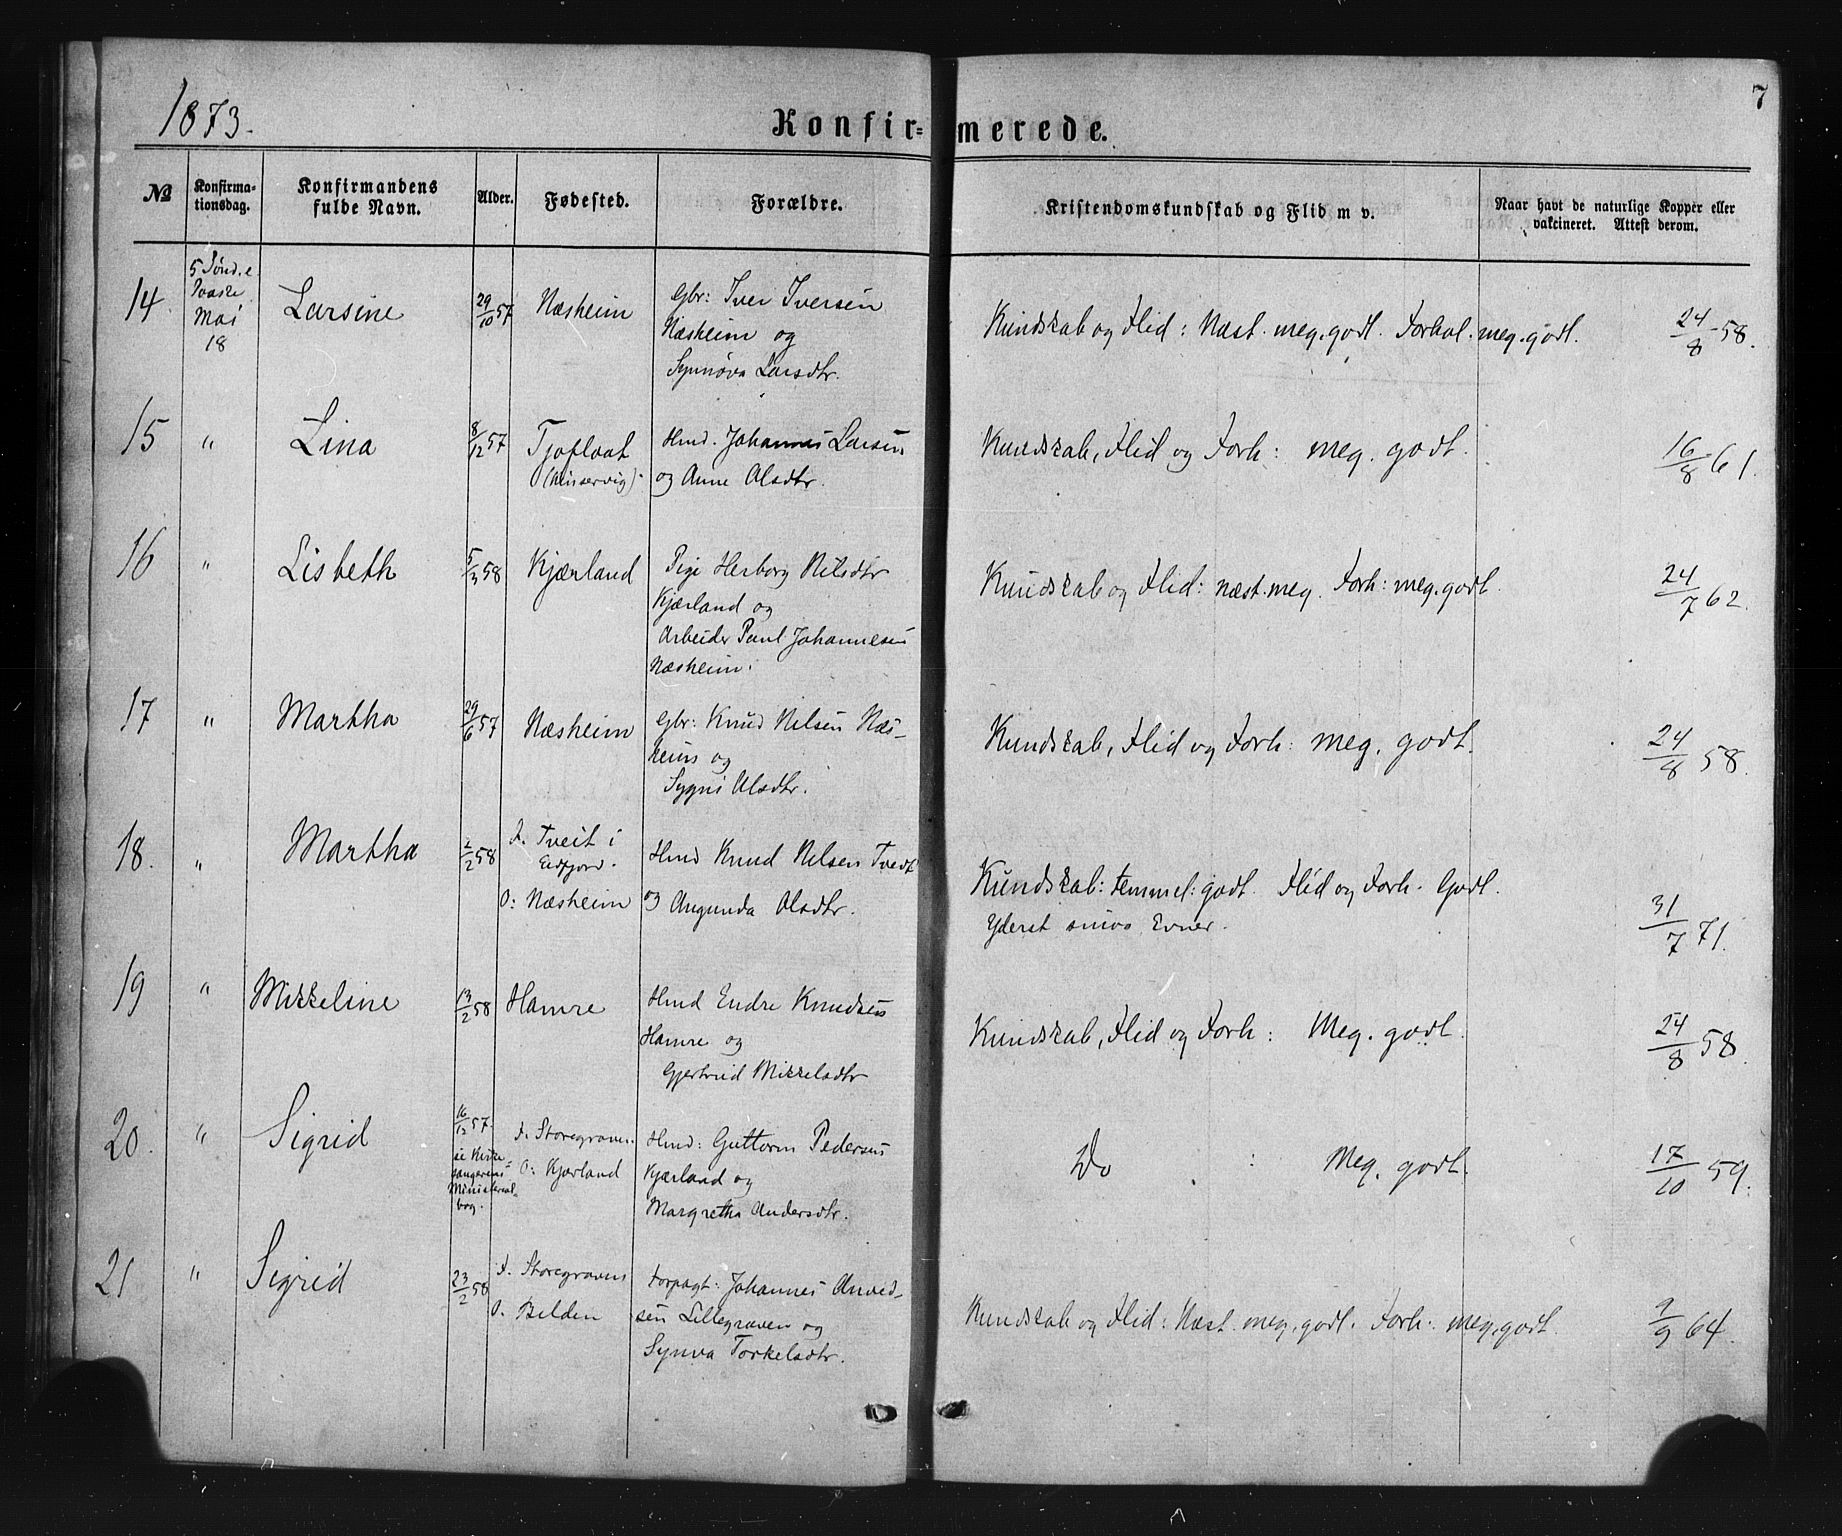 1873.
7
Konfir=merede.
No
Konfirma-
tionsdag.
Konfirmandens
fulde Navn.
Alder.
Fødested.
Forældre.
Kristendomskundskab og Flid m v.
Naar havt de naturlige Kopper eller
vakcineret. Attest derom.
14
5 Sønd. e.
Paaske
Mai
18
Larsine
29/10 57
Næsheim
Gbr: Iver Iversen
Næsheim og
Synnøva Larsdtr.
Kundskab og Flid: Næst. meg. godt. Forhol. meg. godt.
24/8 - 58.
15
"
Lina
8/12 57
Tjoflaat
(Kinservig).
Hmd. Johannes Larsen
og Anne Olsdtr.
Kundskab, Flid og Forh: meg. godt.
16/8 61.
16
"
Lisbeth
5/3 58
Kjærland
Pige Herborg Nilsdtr
Kjærland og
Arbeider Paul Johannesen
Næsheim.
Kundskab og Flid: næst. meg. Forh: meg. godt.
24/7 62.
17
"
Martha
29/6 57
Næsheim
Gbr: Knud Nilsen Næs-
heim og
Sygni Olsdtr.
Kundskab, Flid og Forh: meg. godt.
24/8 58.
18.
"
Martha
2/2 58
F. Tveit i
Eidfjord.
O: Næsheim
Hmd Knud Nilsen Tvedt
og Angunda Olsdtr.
Kundskab: temmel: godt. Flid og Forh. Godt.
Yderst smaa Evner.
31/7 71.
19
"
Mikkeline
13/2 58
Hamre
Hmd Endre Knudsen
Hamre og
Gjertrud Mikkelsdtr
Kundskab, Flid og Forh: Meg. godt.
24/8 58.
20.
"
Sigrid
16/12 57.
se Kirke-
sangerens
Ministerial-
bog.
F. Storegraven
O: Kjærland
Hmd: Guttorm Pedersen
Kjærland og
Margretha Andersdtr.
Do : Meg. godt.
17/10 59.
21
"
Sigrid
23/2 58
F. Storegraven
O. Bilden
Forpagt: Johannes Arved-
sen Lillegraven og
Synva Torkelsdtr.
Kundskab og Flid: Næst. meg. godt. Forh: meg. godt.
9/9 64.